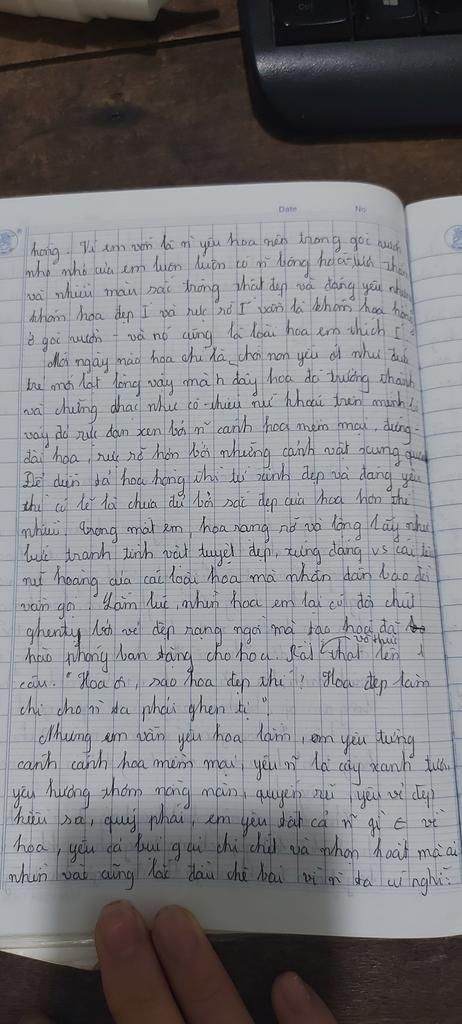 Date No
hồng. Vì em vốn là n yêu hoa nên trong góc vườn
nhỏ nhỏ của em luôn luôn có n bông hoa
và nhiều màu sắc trông thật đẹp và đáng yêu nhưng
khóm hoa đẹp I và rực rỡ I vẫn là khóm hoa hồng
ở góc vườn - và nó cũng là loài hoa em thích I
Mới ngày nào hoa chỉ là chồi non yếu ớt như đứa
trẻ mới lọt lòng vậy mà h đây hoa đã trưởng thành
và chững chạc như cô thiếu nữ khoác trên mình
váy đỏ rực đan xen bởi n cánh hoa mềm mại,
đài hoa, rực rỡ hơn bởi những cảnh vật xung quanh
Để diễn tả hoa hồng chỉ từ xinh đẹp và đáng yêu
thì có lẽ là chưa đủ bởi sắc đẹp của hoa hơn thế
nhiều. Trong mắt em, hoa rạng rỡ và lộng lẫy như
bức tranh tĩnh vật tuyệt đẹp, xứng đáng vs cái tên
nữ hoàng của các loài hoa mà nhân dân bao đời
vẫn gọi. Lắm lúc, nhìn hoa em lại có đôi chút
ghen tỵ bởi vẻ đẹp rạng ngời mà tạo hoá đã
hào phóng ban tặng cho hoa. thốt lên 1
vô thức
câu: "Hoa ơi, sao hoa đẹp thế!? Hoa đẹp làm
chi cho n ta phải ghen tị".
Nhưng em vẫn yêu hoa lắm, em yêu từng
cánh cánh hoa mềm mại, yêu n lá cây xanh tươi,
yêu hương thơm nồng nàn, quyến rũ, yêu vẻ đẹp
kiêu sa, quý phái, em yêu tất cả n gì ∈ về
hoa, yêu cả bụi gai chi chít và nhọn hoắt mà ai
nhìn vào cũng lắc đầu chê bai vì n ta cứ nghĩ: